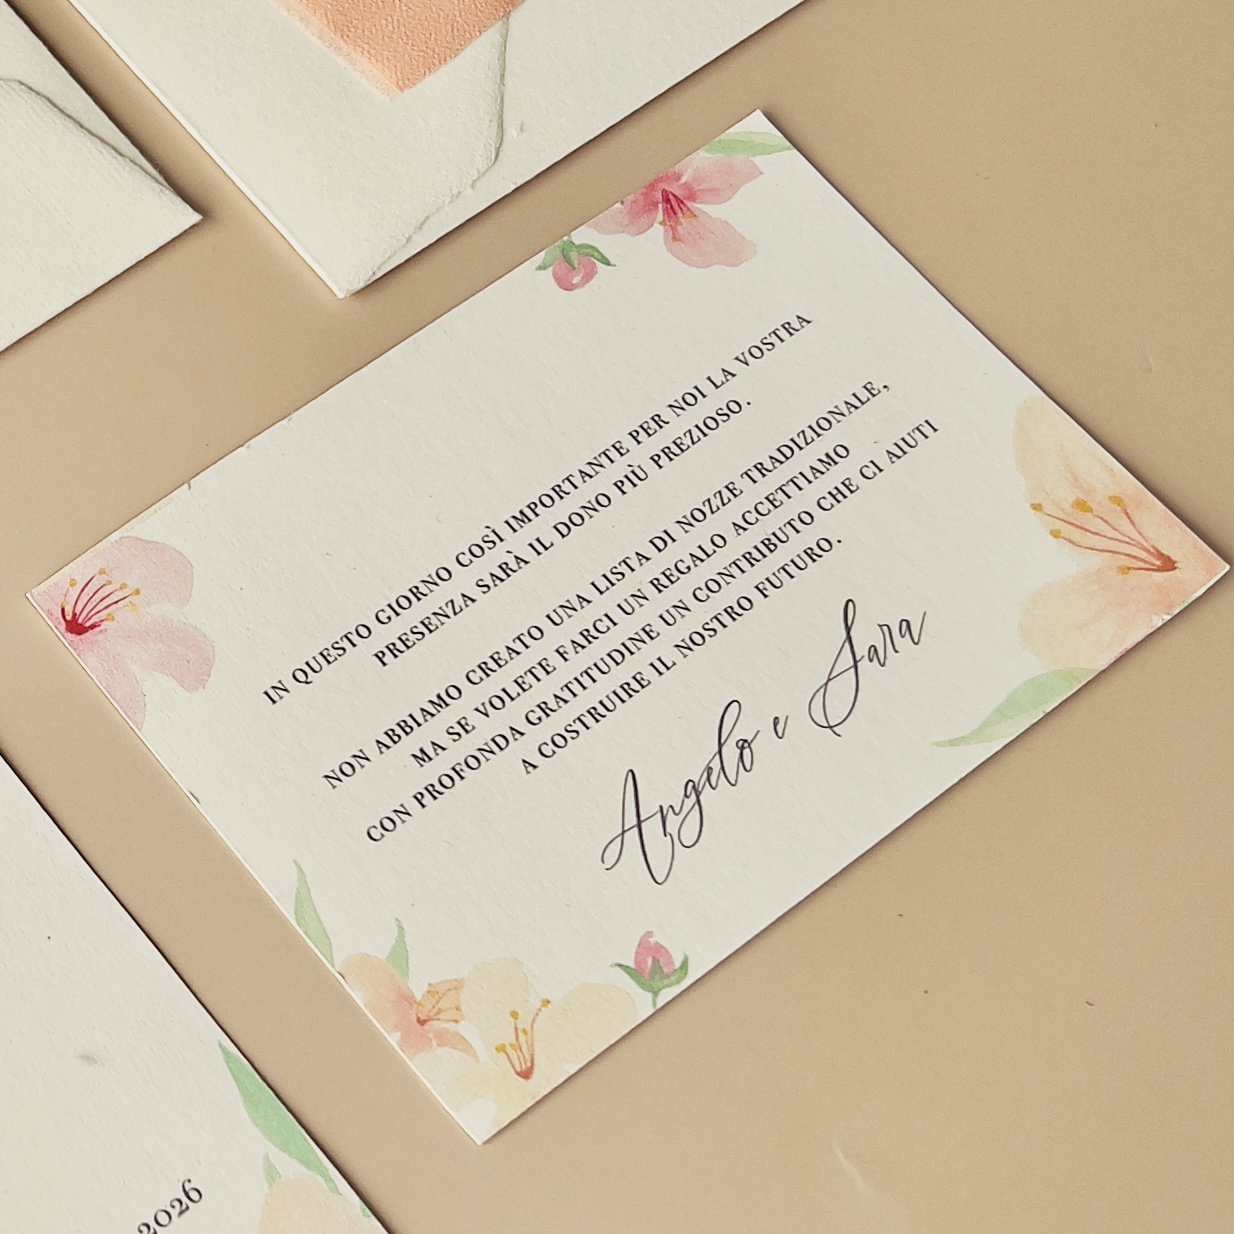 IN QUESTO GIORNO COSÌ IMPORTANTE PER NOI LA VOSTRA
PRESENZA SARÀ IL DONO PIÙ PREZIOSO.
NON ABBIAMO CREATO UNA LISTA DI NOZZE TRADIZIONALE,
MA SE VOLETE FARCI UN REGALO ACCETTIAMO
CON PROFONDA GRATITUDINE UN CONTRIBUTO CHE CI AIUTI
A COSTRUIRE IL NOSTRO FUTURO.
Angelo e Sara
2026